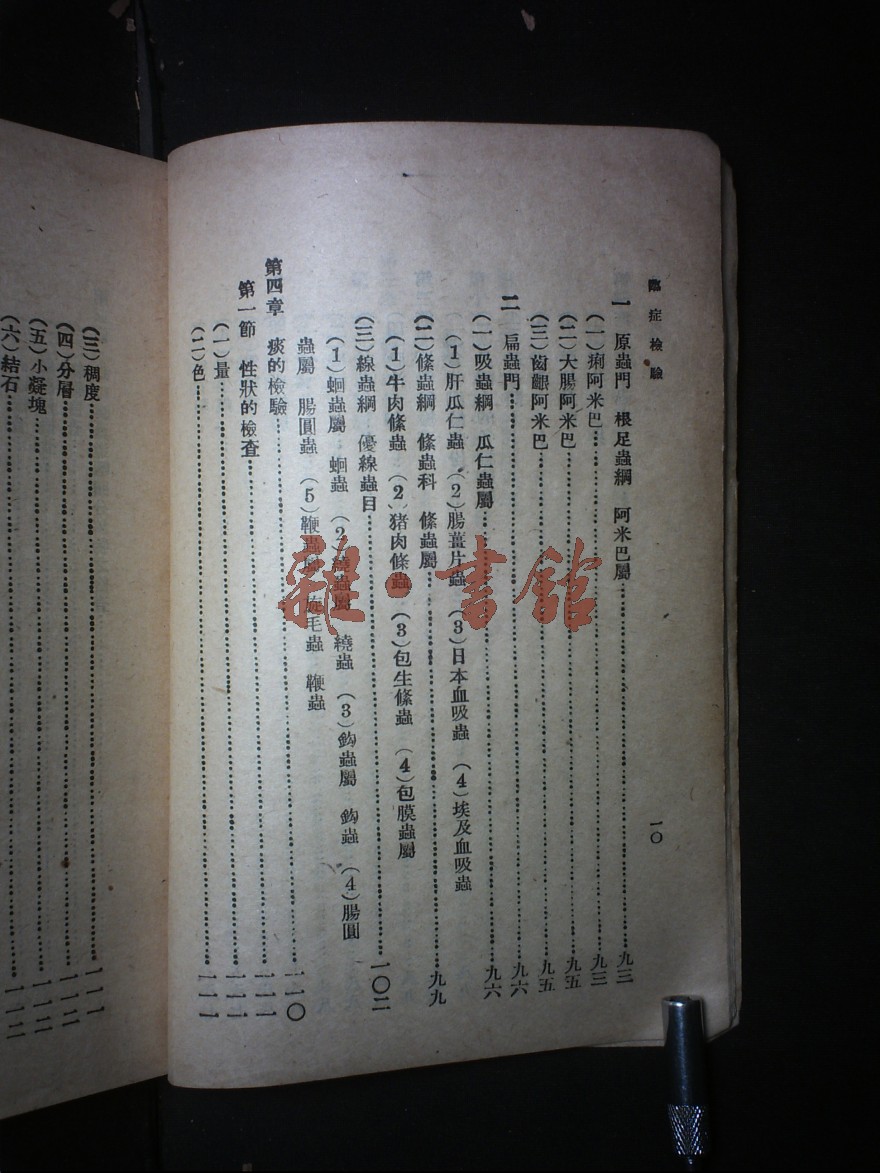 臨症檢驗
一〇
一　原蟲門　根足蟲綱　阿米巴屬……九三
（一）痢阿米巴……九三
（二）大腸阿米巴……九五
（三）齒齦阿米巴……九五
二　扁蟲門……九六
（一）吸蟲綱　瓜仁蟲屬……九六
（1）肝瓜仁蟲　（2）腸薑片蟲　（3）日本血吸蟲　（4）埃及血吸蟲
（二）絛蟲綱　絛蟲科　絛蟲屬……九九
（1）牛肉絛蟲　（2）猪肉絛蟲　（3）包生絛蟲　（4）包膜蟲屬
（三）線蟲綱　優線蟲目……一〇二
（1）蛔蟲屬　蛔蟲　（2）蟯蟲屬　繞蟲　（3）鈎蟲屬　鈎蟲　（4）腸圓
蟲屬　腸圓蟲　（5）鞭蟲屬　旋毛蟲　鞭蟲
第四章　痰的檢驗……一一〇
第一節　性狀的檢查……一一一
（一）量……一一一
（二）色……一一一
（三）稠度……一一一
（四）分層……一一二
（五）小凝塊……一一二
（六）結石……一一二
雜·書館